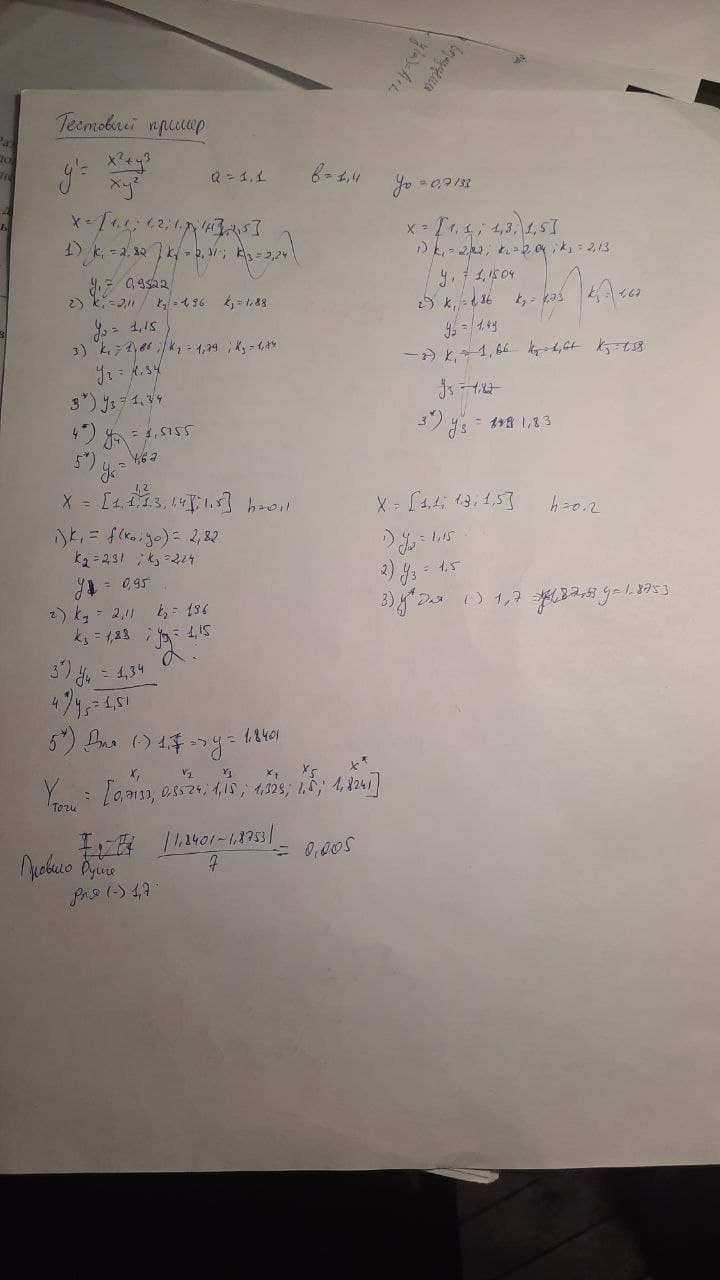 Тестовый пример
y' = (x²+y³)/(xy²) a = 1.1 b = 1,4 y₀ = 0,7133
1) k₁ = 2,82 ; k₂ = 2,31 ; k₃ = 2,24
y₁ = 0,9522
2) k₁ = 2,11 k₂ = 1,96 k₃ = 1,88
y₂ = 1,15
3) k₁ = 1,86 ; k₂ = 1,79 ; k₃ = 1,74
y₃ = 1,34
3*) y₃ = 1,34
4*) y₄ = 1,5155
5*) y₅ = 1,67
x = [1,1 ; 1,3 ; 1,5]
1) k₁ = 2,82 ; k₂ = 2,04 ; k₃ = 2,13
y₁ = 1,1504
2) k₁ = 1,86 k₂ = 1,73 k₃ = 1,67
y₂ = 1,49
3) k₁ = 1,66 k₂ = 1,61 k₃ = 1,58
y₃ = 1,82
3*) y₃ = 1,83
1,2
X = [1,1; 1,3, 1,4; 1,5] h = 0,1
1) k₁ = f(x₀; y₀) = 2,82
k₂ = 2,31 ; k₃ = 2,24
y = 0,95
2) k₁ = 2,11 k₂ = 1,96
k₃ = 1,88 ; y = 1,15
3*) y₄ = 1,34
4*) y₅ = 1,51
5*) Для (·) 1,7 => y = 1,8401
X = [1,1; 1,3; 1,5] h = 0.2
1) y₂ = 1,15
2) y₃ = 1,5
3) y* для (·) 1,7 y = 1,8753
x₁ x₂ x₃ x₄ x₅ x*
Yточн = [0,7133, 0,9524; 1,15 ; 1,329; 1,5 ; 1,8241]
Правило Рунге |1,8401 - 1,8753| / 7 = 0,005
для (·) 1,7